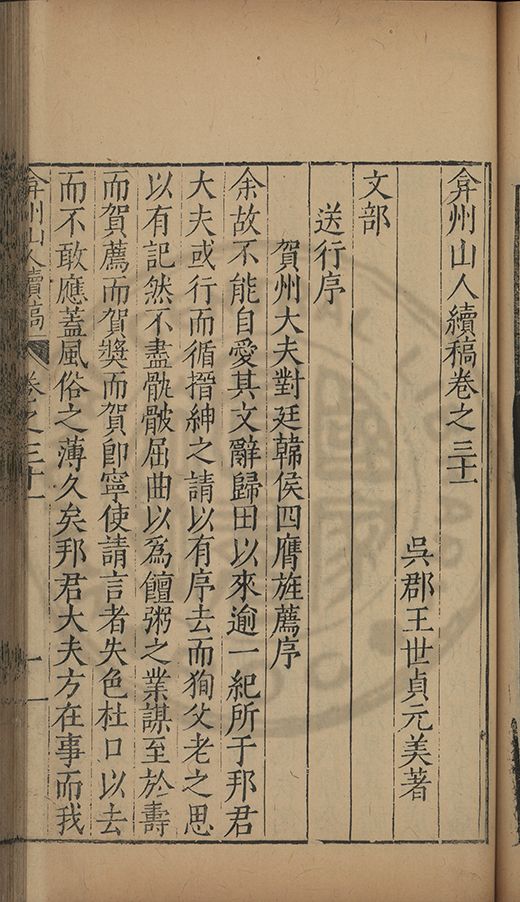 弇州山人續稿卷之三十一
吳郡王世貞元美著
文部
送行序
賀州大夫對廷韓侯四膺旌薦序
余故不能自愛其文辭歸田以來逾一紀所于邦君
大夫或行而循搢紳之請以有序去而狥父老之思
以有記然不盡骩骳屈曲以爲饘粥之業謀至於壽
而賀薦而賀奬而賀卽寧使請言者失色杜口以去
而不敢應蓋風俗之薄久矣邦君大夫方在事而我
弇州山人續稿 卷之三十一 一